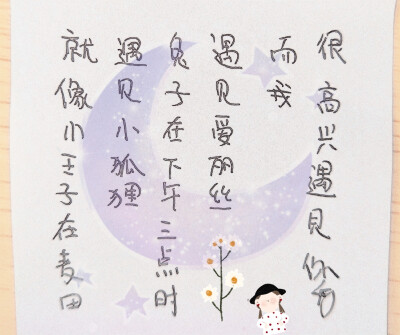 就像小王子在麦田
遇见小狐狸
兔子在下午三点时
遇见爱丽丝
而我
很高兴遇见你